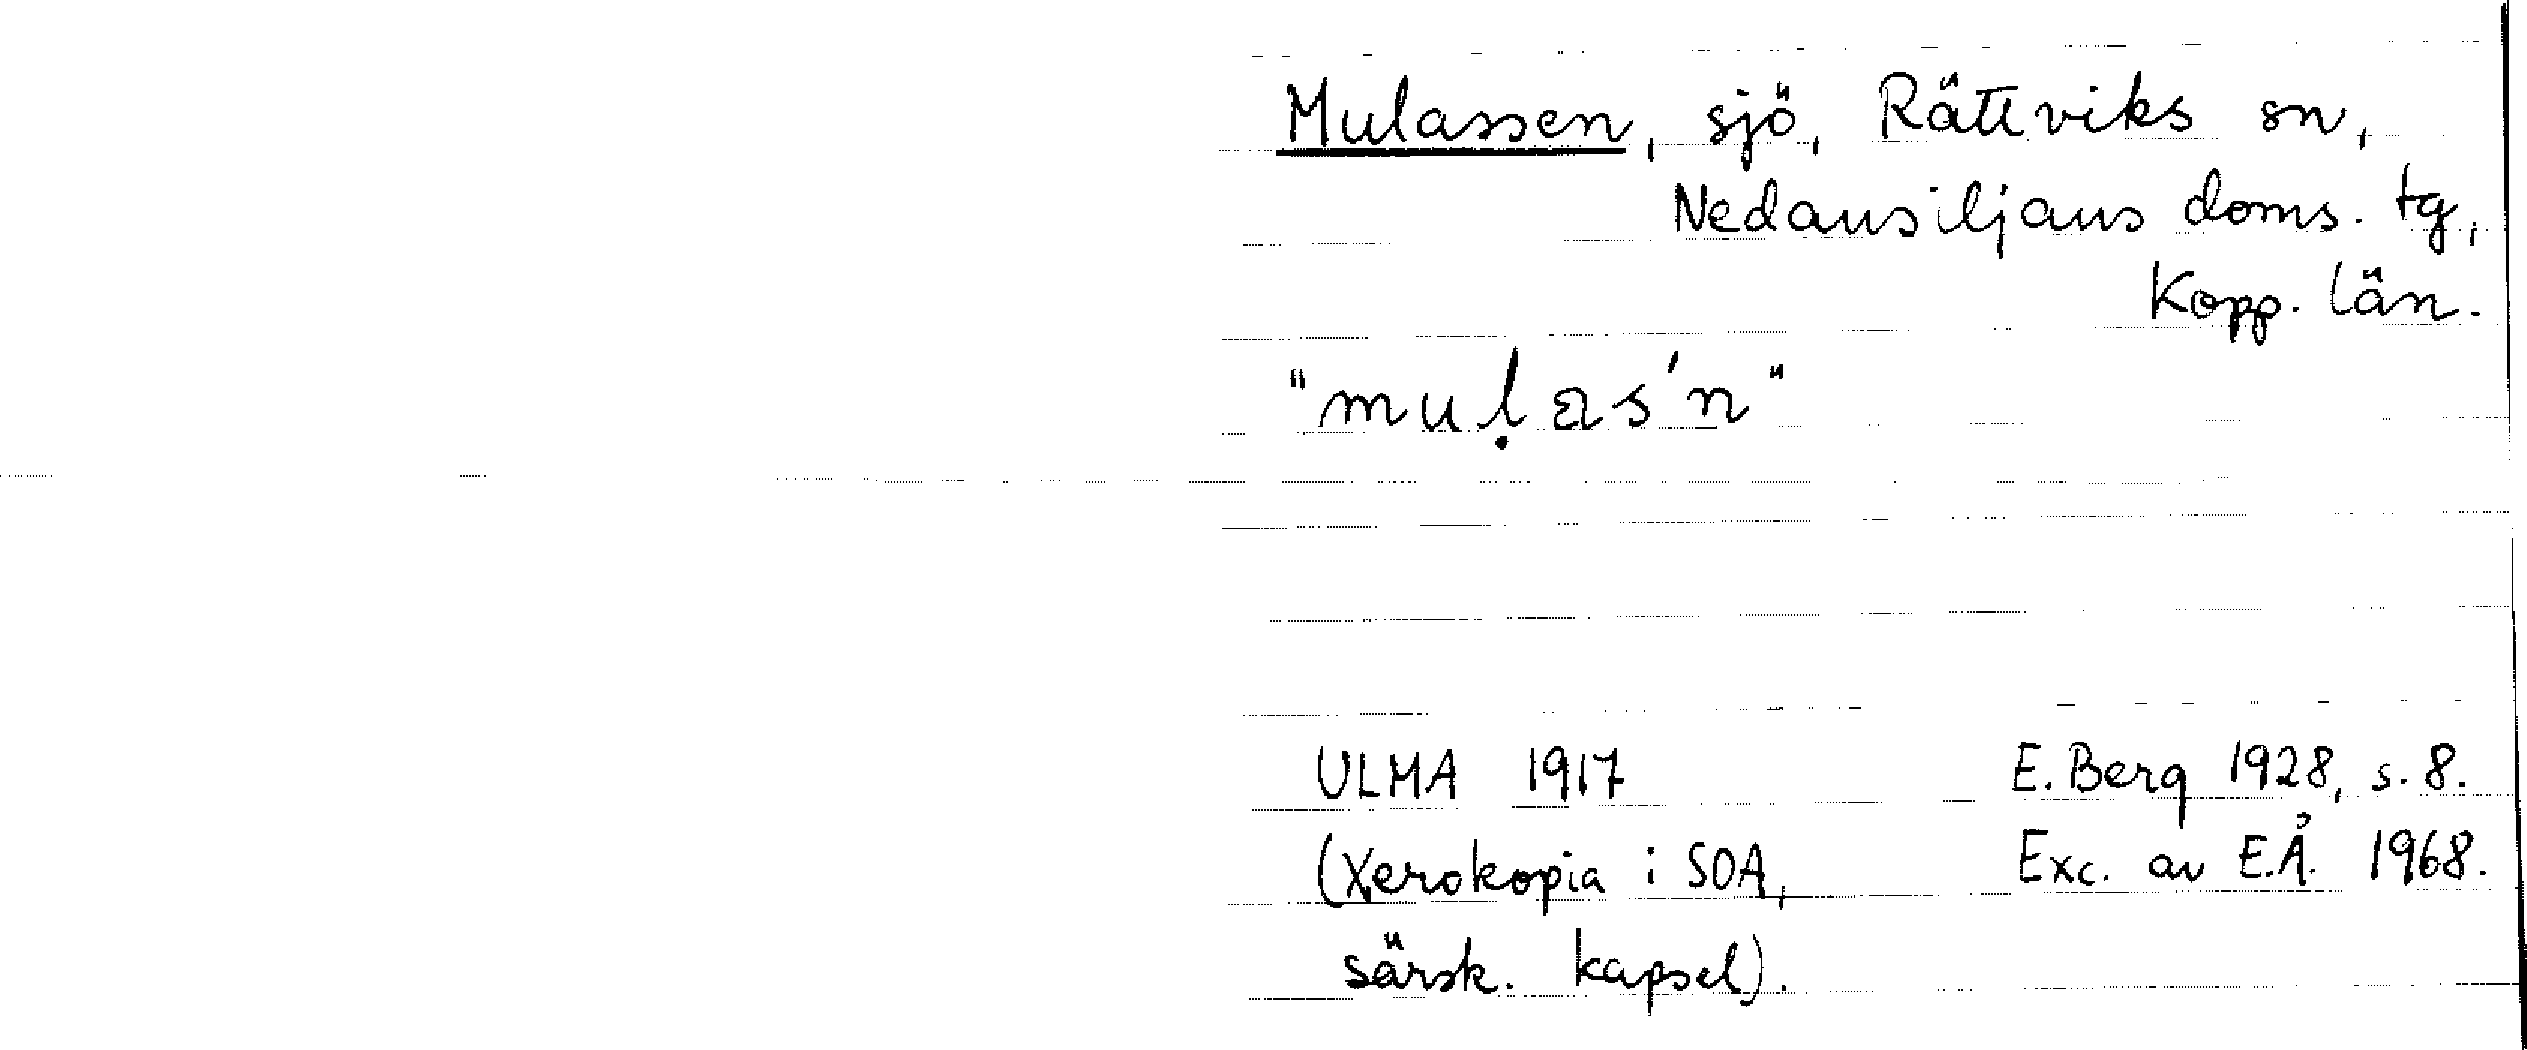 Mulassen, sjö, Rättviks sn,
Nedansiljans doms. tg,
Kopp. län.
"mulas'n"
ULMA 1917 E. Berg 1928, s. 8.
(Xerokopia i SOA, Exc. av E.Å. 1968.
särsk. kapsel).